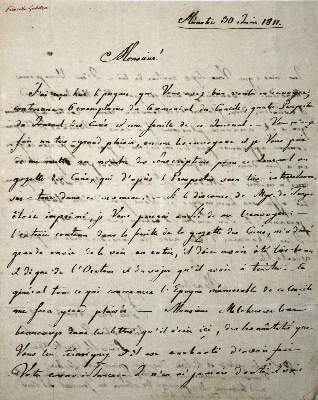 30 Juin 1811.
Monsieur!
J'ai reçu hier le paquet que Vous avez bien voulu m'envoyer,
contenant exemplaires du Concile, quatre Prospectus
du Journal des Curés et une feuille de ce Journal. Vous m'avez
fait un très grand plaisir, en me les envoyant et je Vous prie
de me mettre au nombre des souscripteurs pour ce Journal ou
gazette des Curés, qui d'après le Prospectus sera très intéressant
si le discours de Mgr
imprimé, je Vous prierai aussi de me l'envoyer:
l'extrait contenu dans la feuille de la gazette des Curés, m'a donné
grande envie de le voir en entier, il doit avoir été bien beau
et digne de l'Orateur et du sujet qu'il avoit à traiter. En
général tout ce qui concerne l'Epoque mémorable de ce concile
me fera grand plaisir. — Monsieur se loue
beaucoup dans les lettres qu'il écrit ici, des honnêtetés que
Vous lui témoignez. Il est enchanté d'avoir fait
Votre connaissance. Je n'en ai jamais douté. J'étais